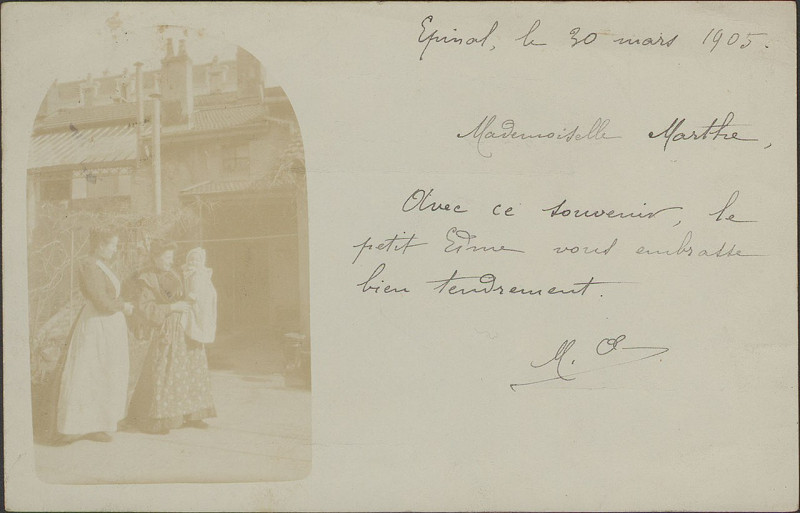 Epinal, le 30 mars 1905.
Mademoiselle Marthe,
Avec ce souvenir, le
petit Edme vous embrasse
bien tendrement.
M. O